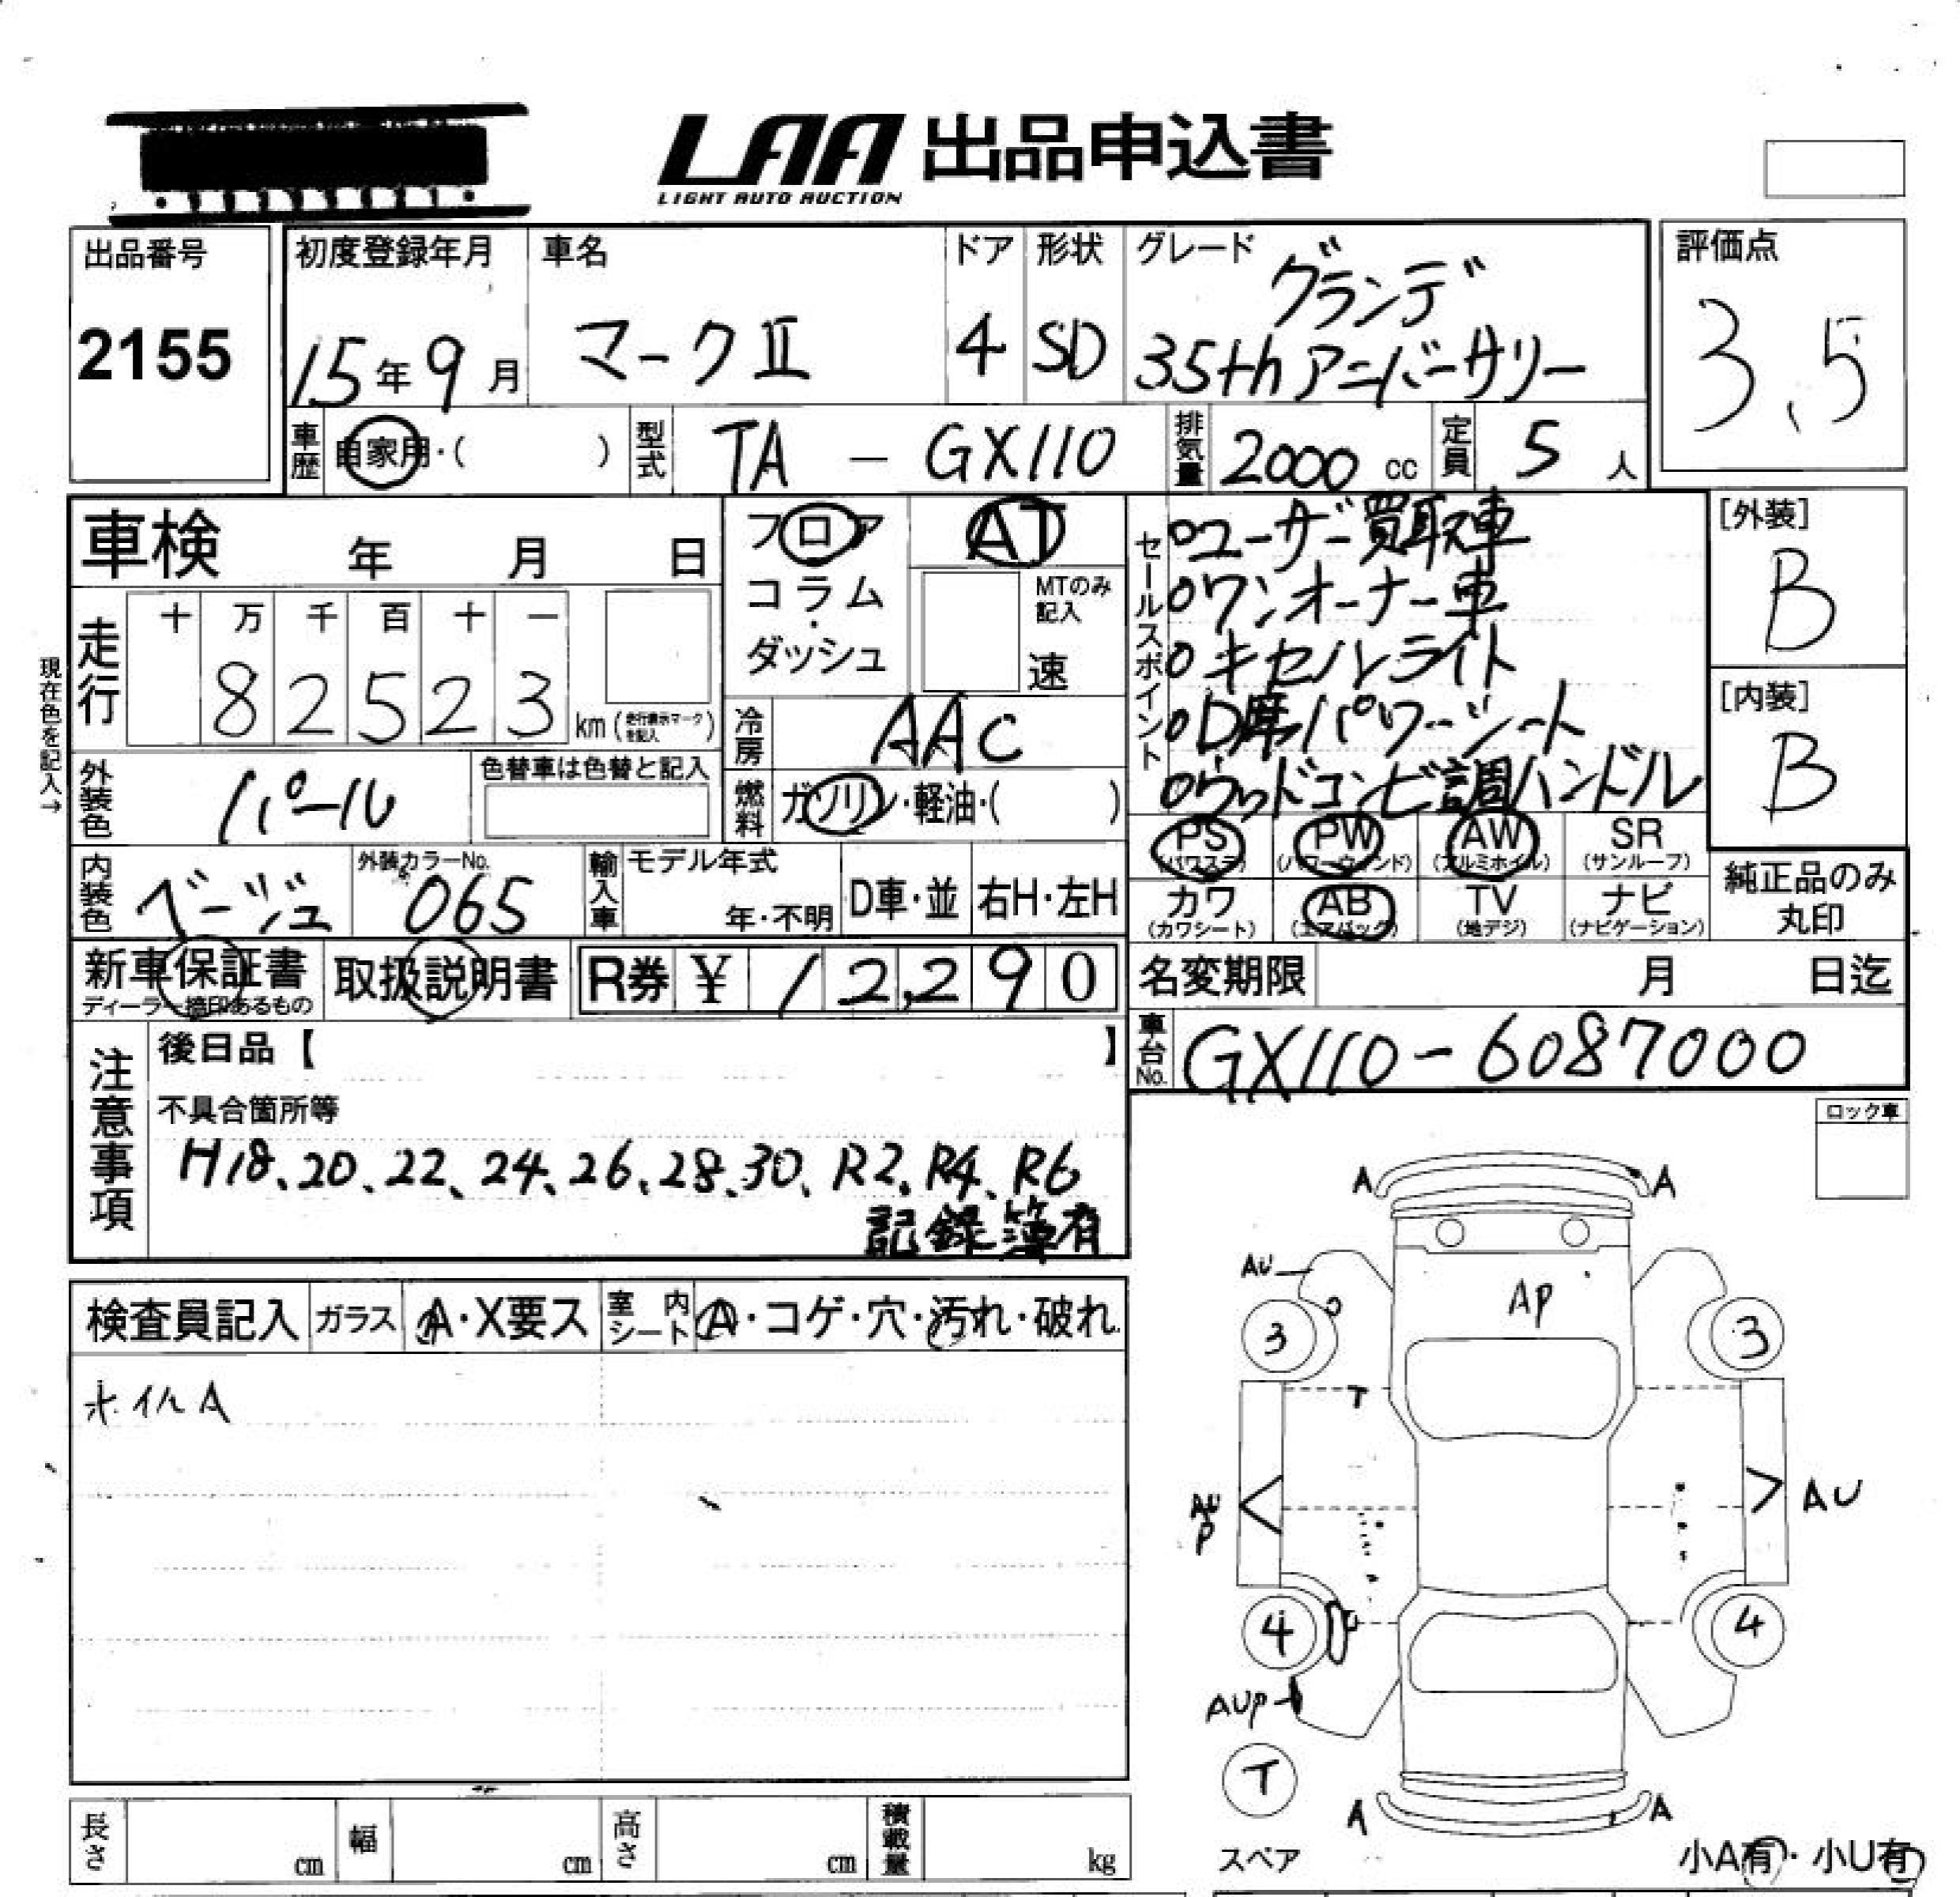 LAA 出品申込書
LIGHT AUTO AUCTION
出品番号
2155
初度登録年月
15年9月
車名
マークⅡ
ドア
4
形状
SD
グレード
グランデ
35thアニバーサリー
評価点
3.5
車歴
自家用・( )
型式
TA - GX110
排気量
2000 cc
定員
5 人
車検 年 月 日
フロア
コラム
・
ダッシュ
AT
MTのみ
記入
速
セールスポイント
○ユーザー買取車
○ワンオーナー車
○キセノンライト
○D席パワーシート
○ウッドコンビ調ハンドル
[外装]
B
[内装]
B
現在色を記入→
走行
十 万 千 百 十 一
82523
km (走行表示マークを記入)
冷房
AAC
外装色
パール
色替車は色替と記入
燃料
ガソリン・軽油・( )
PS
(パワステ)
PW
(パワーウィンド)
AW
(アルミホイル)
SR
(サンルーフ)
カワ
(カワシート)
AB
(エアバッグ)
TV
(地デジ)
ナビ
(ナビゲーション)
純正品のみ
丸印
内装色
ベージュ
外装カラーNo.
065
輸入車
モデル年式
年・不明
D車・並
右H・左H
新車保証書
ディーラー捺印あるもの
取扱説明書
R券 ¥ 12,290
名変期限 月 日迄
車台No.
GX110-6087000
注意事項
後日品【 】
不具合箇所等
H18、20、22、24、26、28、30、R2、R4、R6
記録簿有
ロック車
検査員記入
ガラス
A・X要ス
室内シート
A・コゲ・穴・汚れ・破れ
ホイルA
A A
AU
AP
3 3
T
AU
P
AU
4 4
AUP
T
A A
スペア
小A有・小U有
長さ cm
幅 cm
高さ cm
積載量 kg